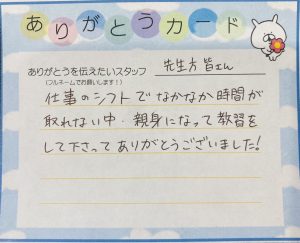 ありがとうカード
ありがとうを伝えたいスタッフ
(フルネームでお願いします!)
先生方 皆さん
仕事のシフトでなかなか時間が
取れない中、親身になって教習を
して下さってありがとうございました!